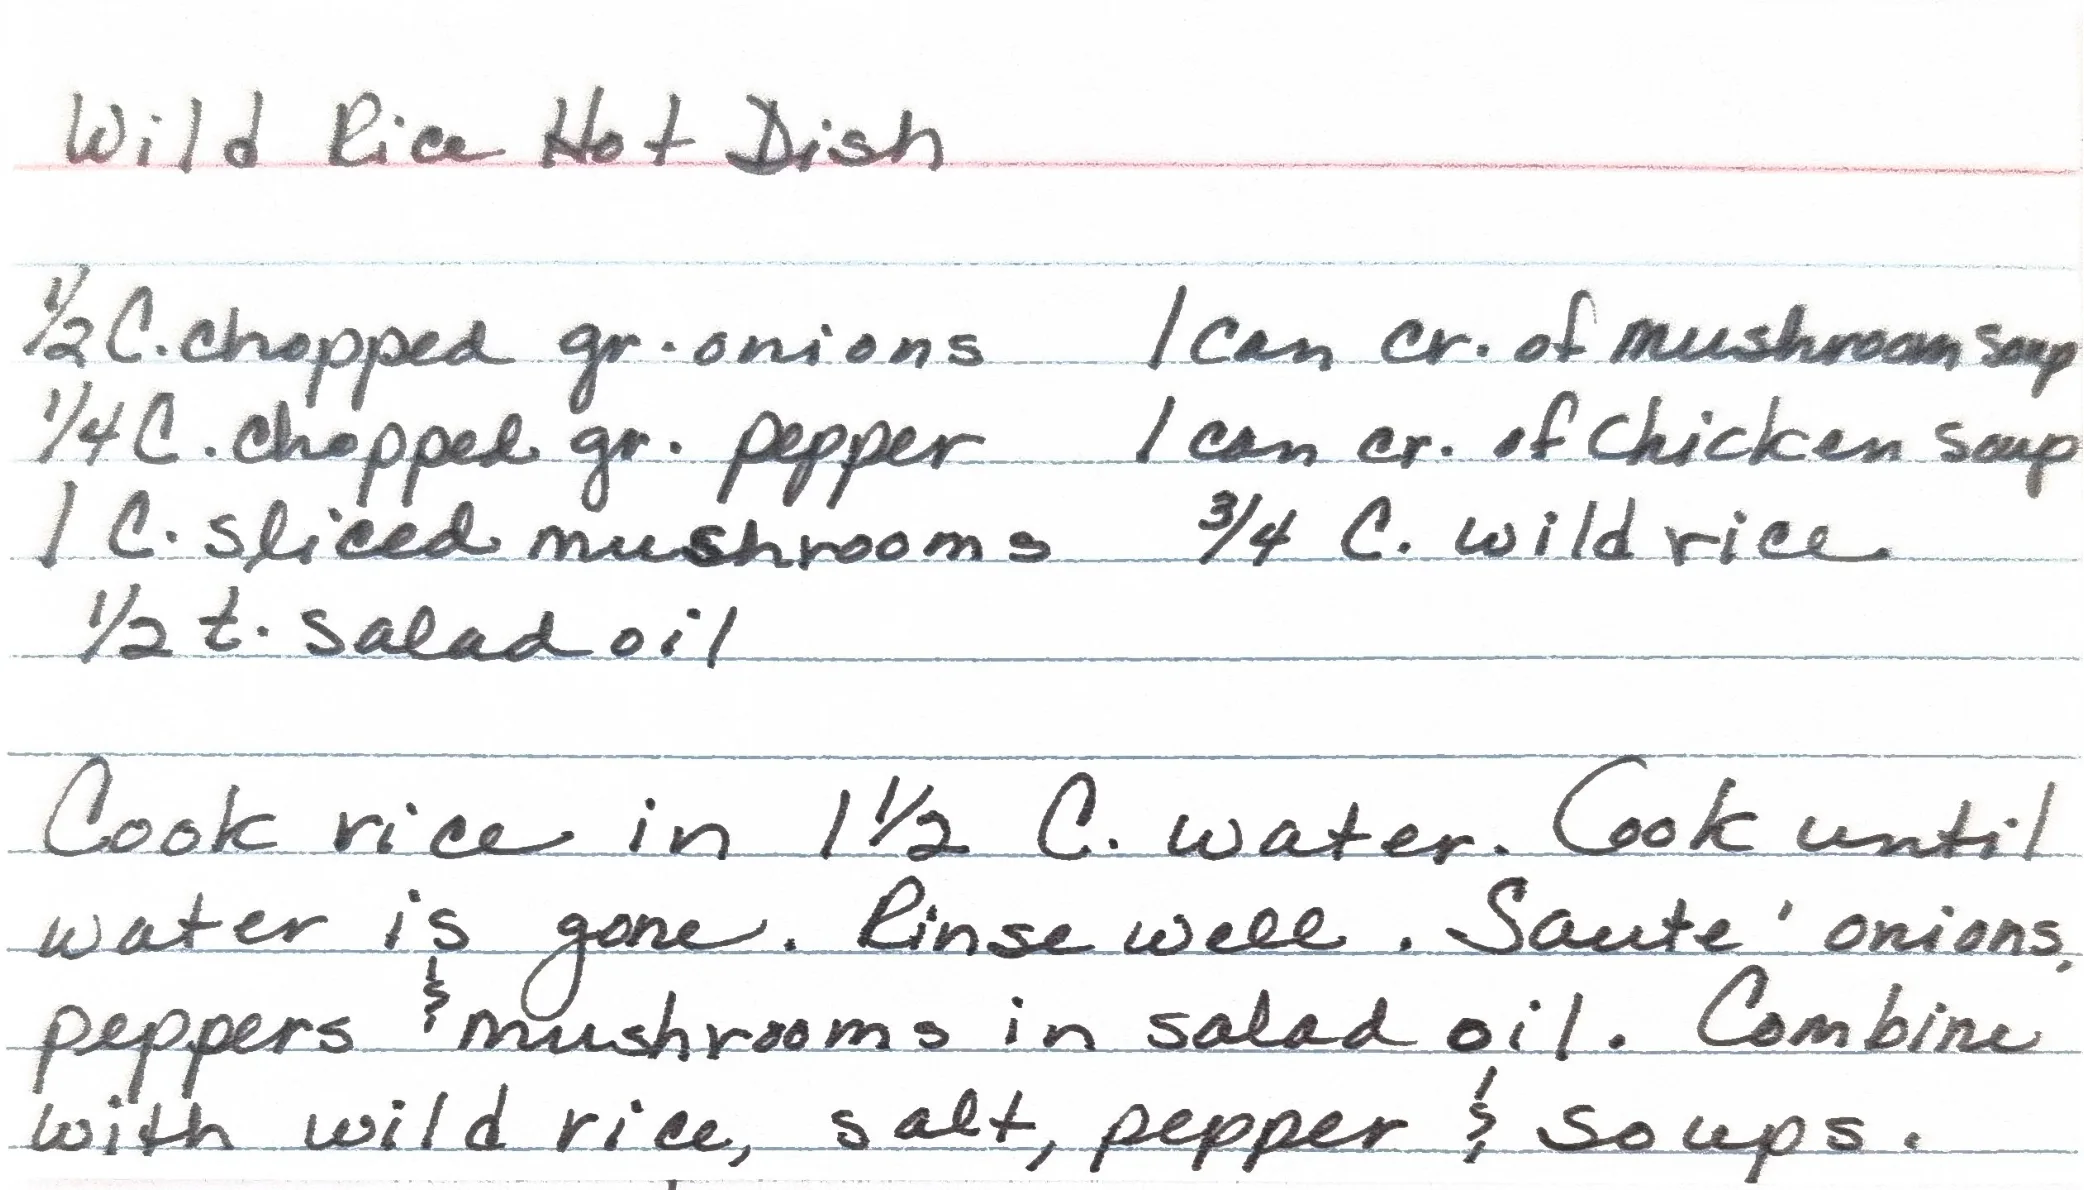 Wild Rice Hot Dish
1/2 C. chopped gr. onions 1 can cr. of mushroom soup
1/4 C. chopped gr. pepper 1 can cr. of chicken soup
1 C. sliced mushrooms 3/4 C. wild rice
1/2 t. salad oil
Cook rice in 1 1/2 C. water. Cook until
water is gone. Rinse well. Saute' onions,
peppers & mushrooms in salad oil. Combine
with wild rice, salt, pepper & soups.